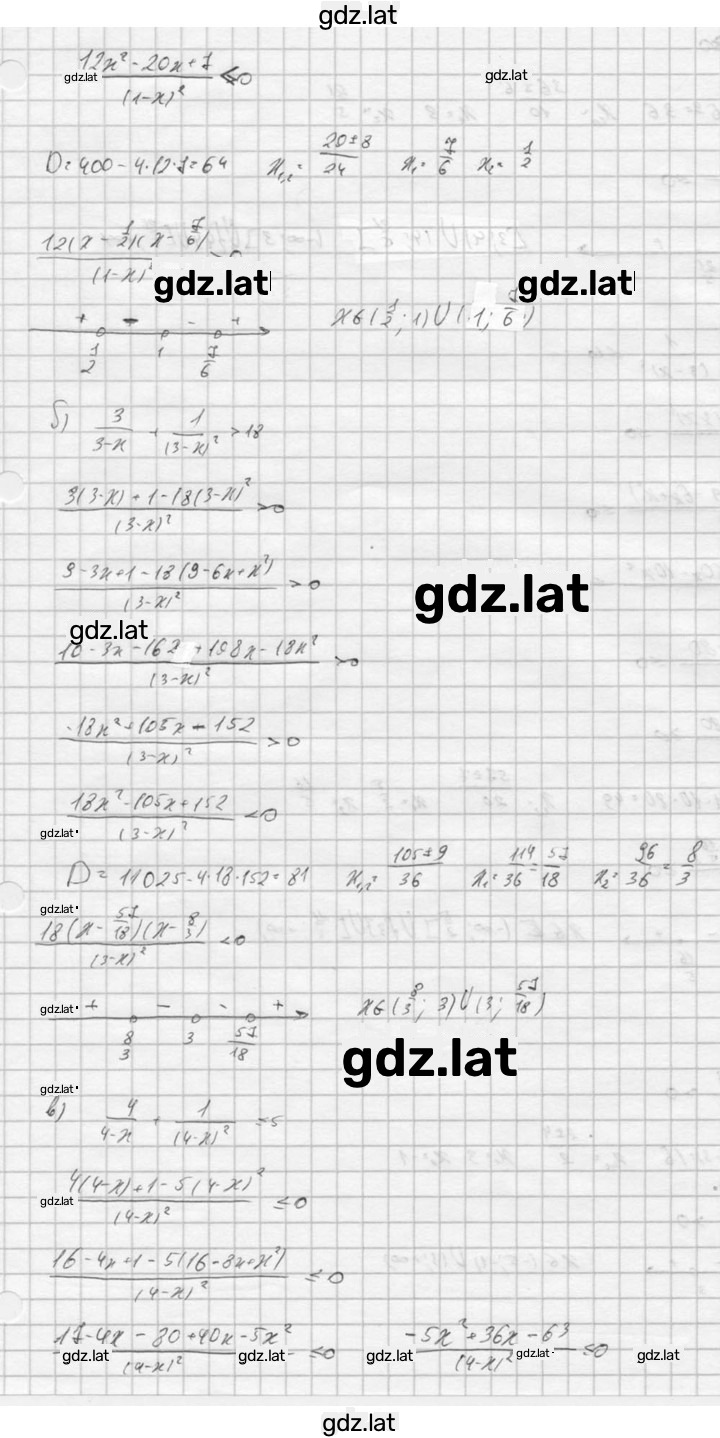 gdz.lat
(12x² - 20x + 7)/(1-x)² ≤ 0
gdz.lat gdz.lat
D = 400 - 4·12·7 = 64 x₁,₂ = (20±8)/24 x₁ = 7/6 x₂ = 1/2
12(x - 1/2)(x - 7/6)/(1-x)
gdz.lat gdz.lat
+ - - +
1/2 1 7/6
x ∈ (1/2; 1) ∪ (1; 7/6)
б) 3/(3-x) + 1/(3-x)² > 18
(3(3-x) + 1 - 18(3-x)²)/(3-x)² > 0
(9 - 3x + 1 - 18(9 - 6x + x²))/(3-x)² > 0
gdz.lat
gdz.lat
(10 - 3x - 162 + 108x - 18x²)/(3-x)² > 0
(-18x² + 105x - 152)/(3-x)² > 0
(18x² - 105x + 152)/(3-x)² < 0
gdz.lat
D = 11025 - 4·18·152 = 81 x₁,₂ = (105±9)/36 x₁ = 114/36 = 57/18 x₂ = 96/36 = 8/3
gdz.lat
18(x - 57/18)(x - 8/3)/(3-x)² < 0
gdz.lat + - - +
8/3 3 57/18
x ∈ (8/3; 3) ∪ (3; 57/18)
gdz.lat
gdz.lat
в) 4/(4-x) + 1/(4-x)² ≤ 5
gdz.lat
(4(4-x) + 1 - 5(4-x)²)/(4-x)² ≤ 0
(16 - 4x + 1 - 5(16 - 8x + x²))/(4-x)² ≤ 0
(17 - 4x - 80 + 40x - 5x²)/(4-x)² ≤ 0 (-5x² + 36x - 63)/(4-x)² ≤ 0
gdz.lat gdz.lat gdz.lat gdz.lat gdz.lat
gdz.lat